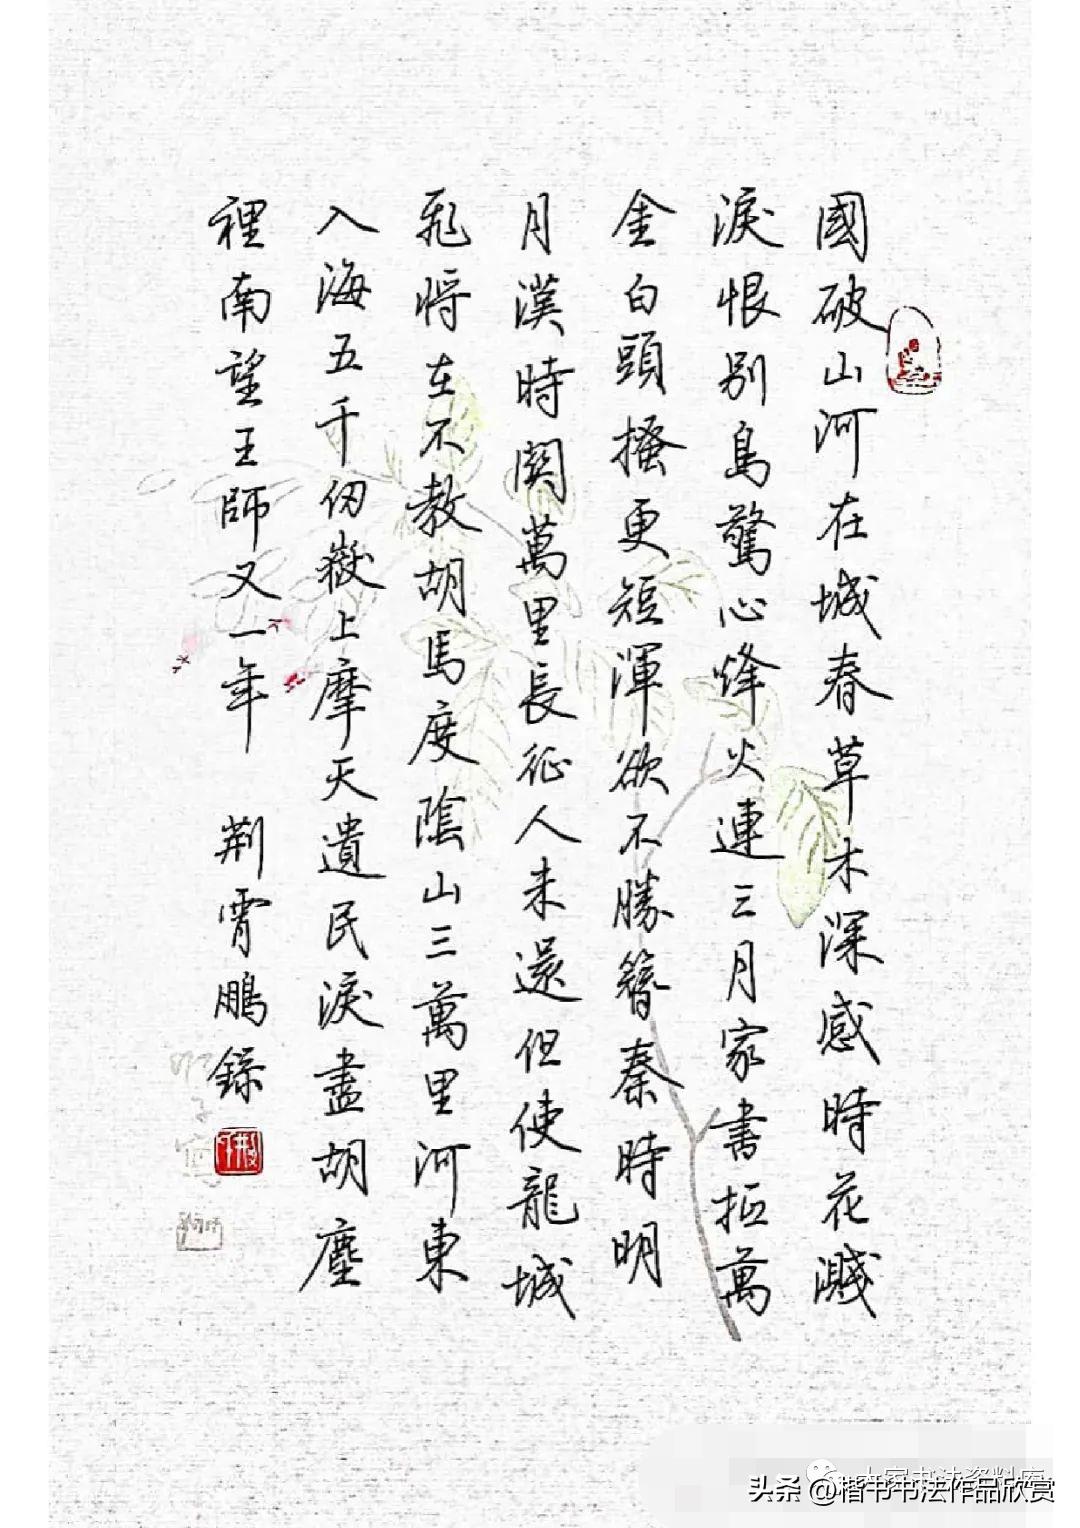 國破山河在城春草木深感時花濺
淚恨別鳥驚心烽火連三月家書抵萬
金白頭搔更短渾欲不勝簪秦時明
月漢時關萬里長征人未還但使龍城
飛將在不教胡馬度陰山三萬里河東
入海五千仞嶽上摩天遺民淚盡胡塵
裡南望王師又一年 荊霄鵬錄
头条 @楷书书法作品欣赏